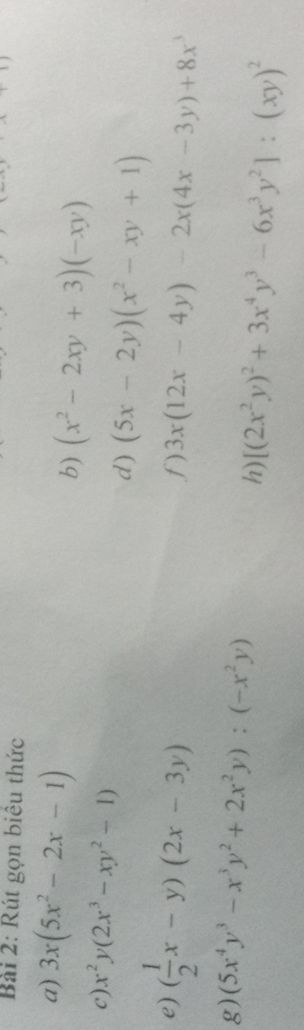 Bài 2: Rút gọn biểu thức
a) 3x(5x² − 2x − 1) b) (x² − 2xy + 3)(−xy)
c) x²y(2x³ − xy² − 1) d) (5x − 2y)(x² − xy + 1)
e) (1/2 x − y) (2x − 3y) f) 3x(12x − 4y) − 2x(4x − 3y) + 8x³
g) (5x⁴y³ − x³y² + 2x²y) : (−x²y) h) [(2x²y)² + 3x⁴y³ − 6x³y²] : (xy)²